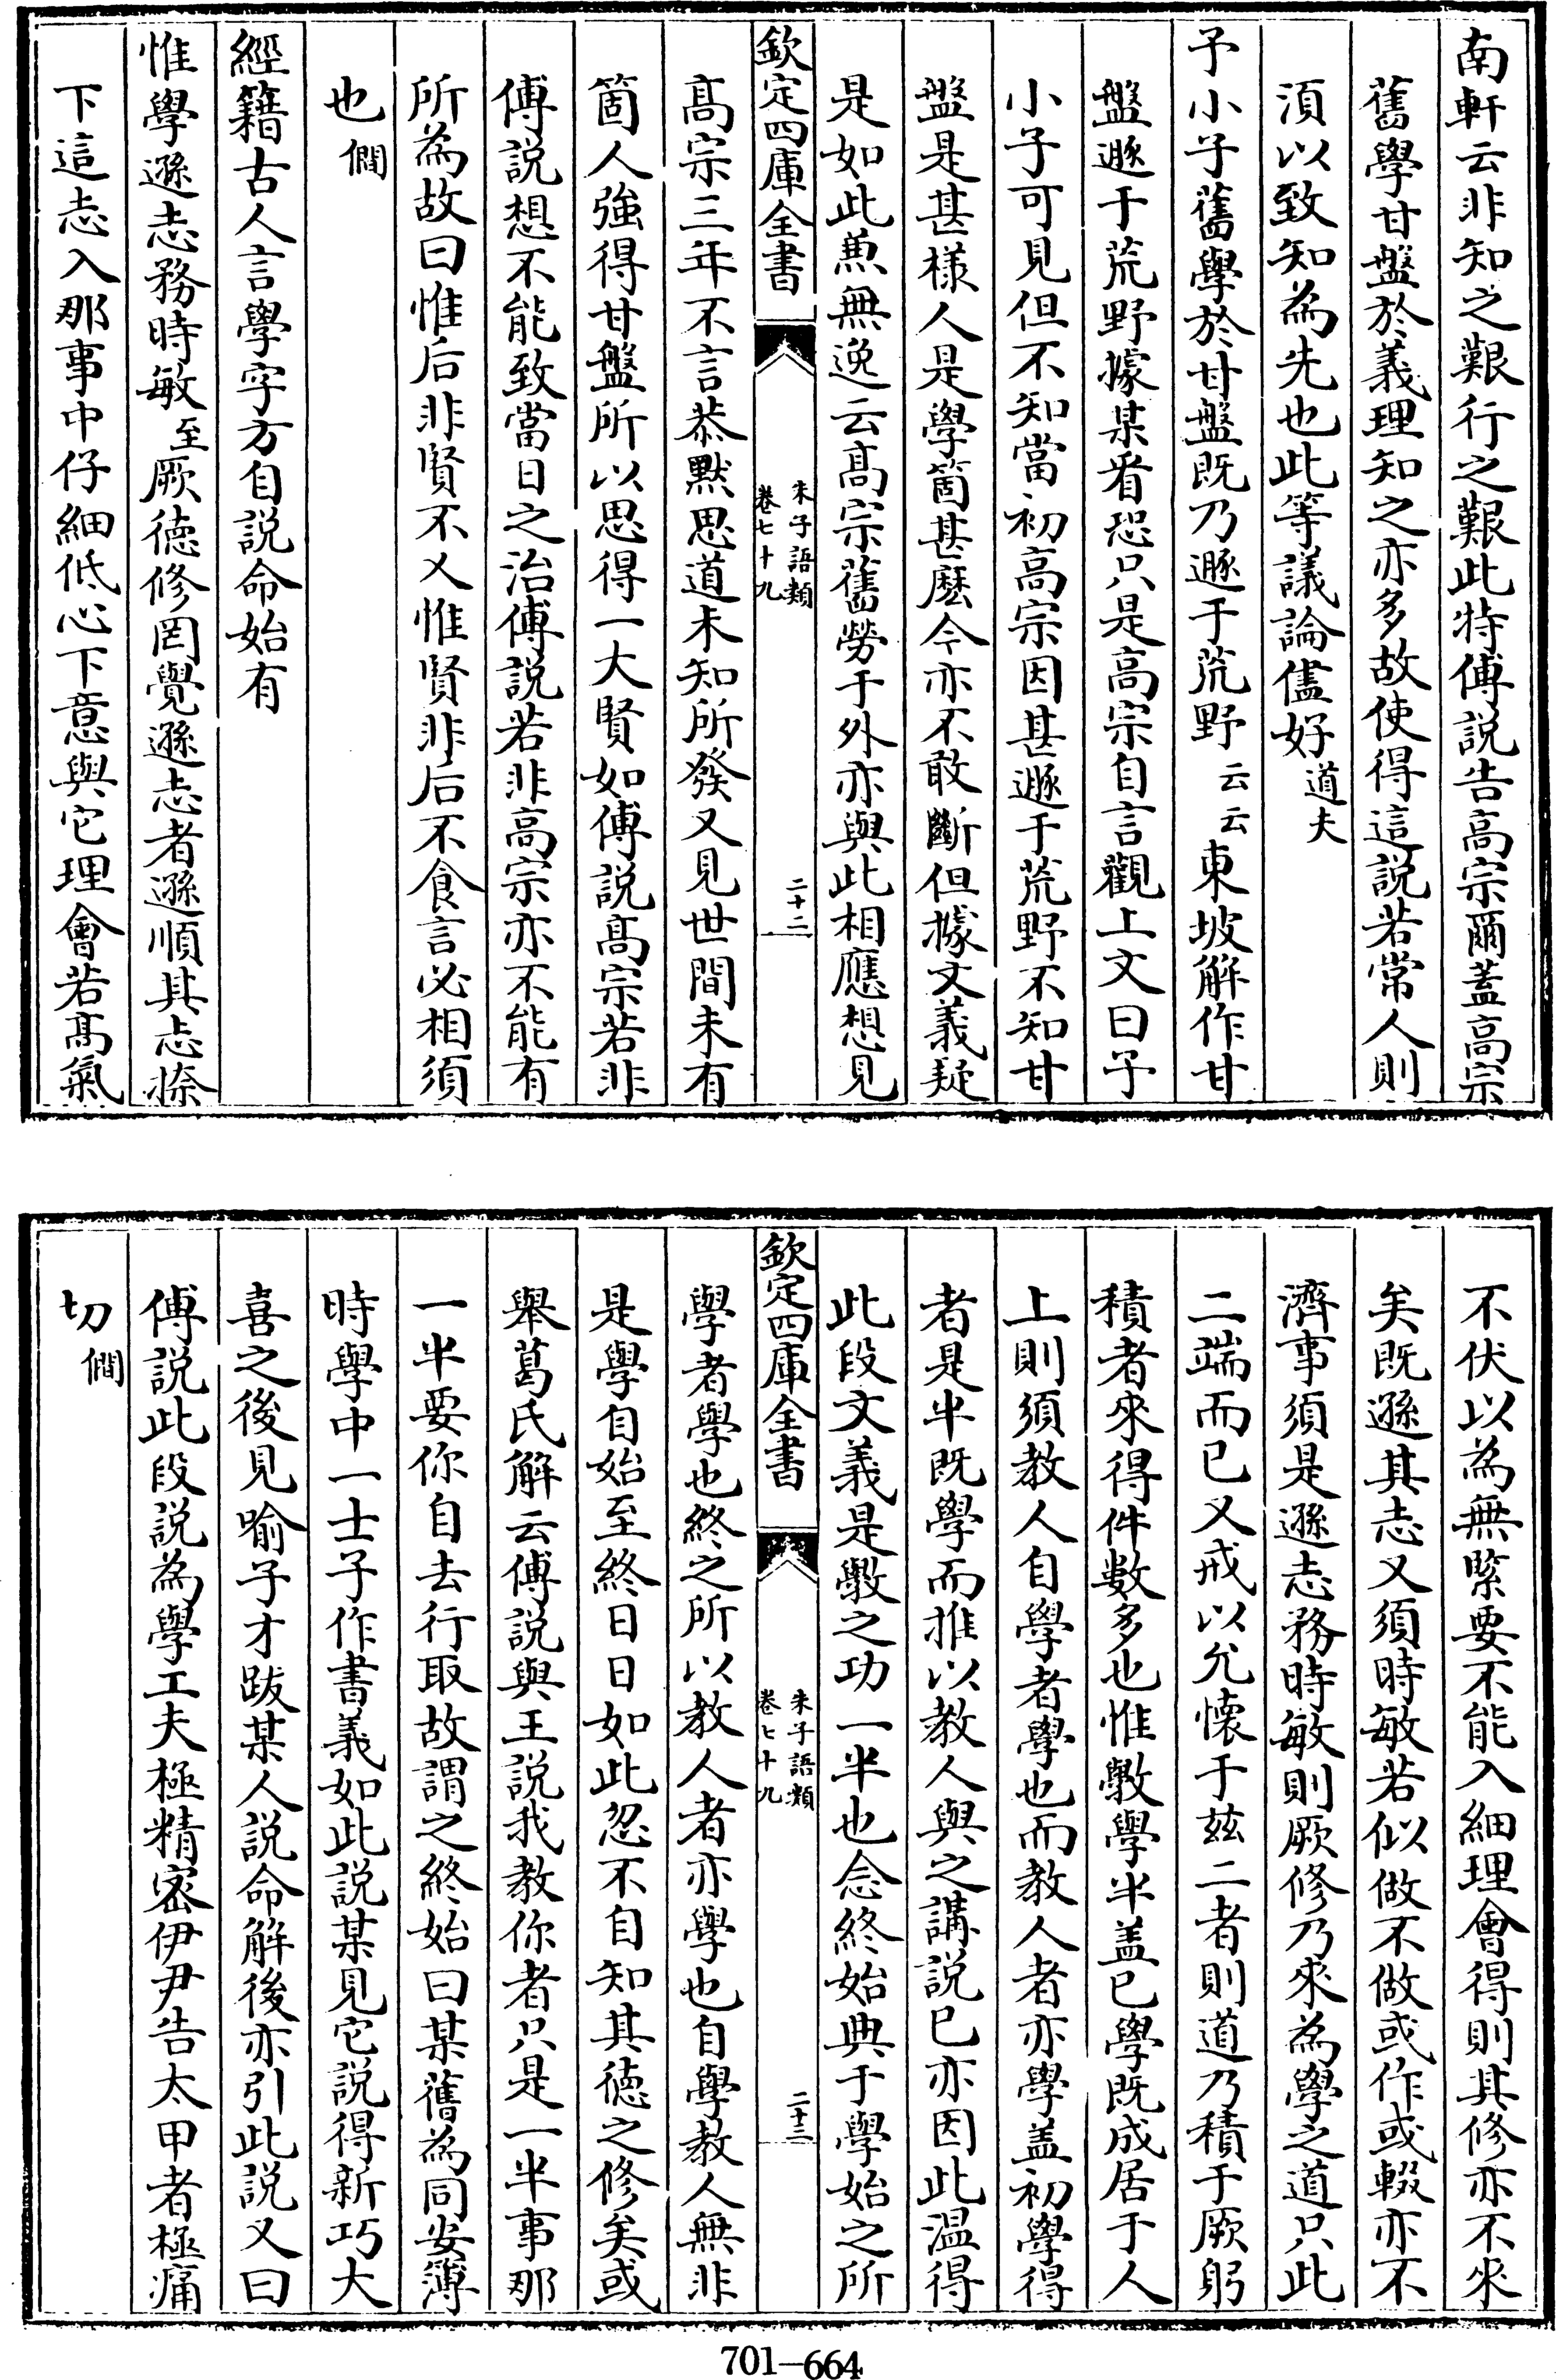 南軒云非知之艱行之艱此特傅説告高宗爾蓋高宗
舊學甘盤於義理知之亦多故使得這説若常人則
湏以致知為先也此等議論儘好道夫
予小子舊學於甘盤既乃遯于荒野云云東坡解作甘
盤遯于荒野據某看恐只是高宗自言觀上文曰予
小子可見但不知當初高宗因甚遯于荒野不知甘
盤是甚樣人是學箇甚麽今亦不敢斷但據文義疑
是如此兼無逸云高宗舊勞于外亦與此相應想見
欽定四庫全書
朱子語類
卷七十九
二十二
高宗三年不言恭默思道未知所發又見世間未有
箇人強得甘盤所以思得一大賢如傅説高宗若非
傅説想不能致當日之治傅説若非高宗亦不能有
所為故曰惟后非賢不乂惟賢非后不食言必相須
也僩
經籍古人言學字方自説命始有
惟學遜志務時敏至厥德修罔覺遜志者遜順其志捺
下這志入那事中仔細低心下意與它理會若高氣
不伏以為無緊要不能入細理會得則其修亦不來
矣既遜其志又須時敏若似做不做或作或輟亦不
濟事須是遜志務時敏則厥修乃來為學之道只此
二端而已又戒以允懷于兹二者則道乃積于厥躬
積者來得件數多也惟斆學半盖已學既成居于人
上則須教人自學者學也而教人者亦學盖初學得
者是半既學而推以教人與之講説已亦因此温得
此段文義是斆之功一半也念終始典于學始之所
欽定四庫全書
朱子語類
卷七十九
二十三
學者學也終之所以教人者亦學也自學教人無非
是學自始至終日日如此忽不自知其德之修矣或
舉葛氏解云傅説與王説我教你者只是一半事那
一半要你自去行取故謂之終始曰某舊為同安簿
時學中一士子作書義如此説某見它説得新巧大
喜之後見喻子才跋某人説命解後亦引此説又曰
傅説此段説為學工夫極精宻伊尹告太甲者極痛
切僩
701-664